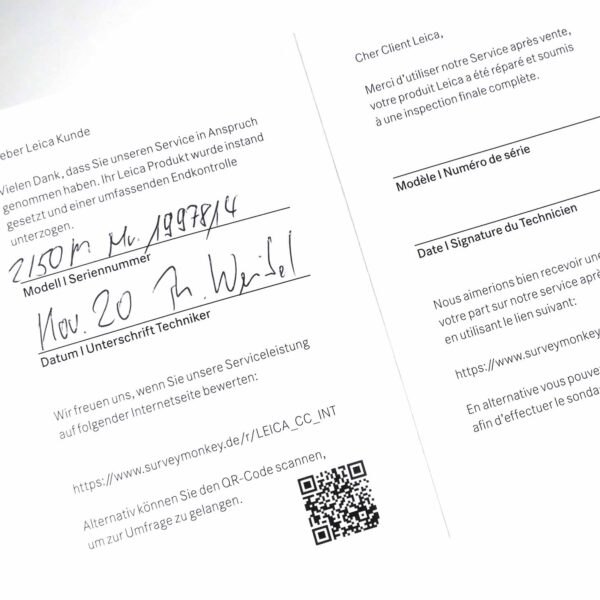 eber Leica Kunde
Vielen Dank, dass Sie unseren Service in Anspruch
genommen haben. Ihr Leica Produkt wurde instand
gesetzt und einer umfassenden Endkontrolle
unterzogen.
Nr. 1997814
Modell | Seriennummer
Nov. 20
Datum | Unterschrift Techniker
Wir freuen uns, wenn Sie unsere Serviceleistung
auf folgender Internetseite bewerten:
https://www.surveymonkey.de/r/LEICA_CC_INT
Alternativ können Sie den QR-Code scannen,
um zur Umfrage zu gelangen.
Cher Client Leica,
Merci d'utiliser notre Service après vente,
votre produit Leica a été réparé et soumis
à une inspection finale complète.
Modèle | Numéro de série
Date | Signature du Technicien
Nous aimerions bien recevoir une
votre part sur notre service aprè
en utilisant le lien suivant:
https://www.surveymonkey.
En alternative vous pouve
afin d'effectuer le sonda